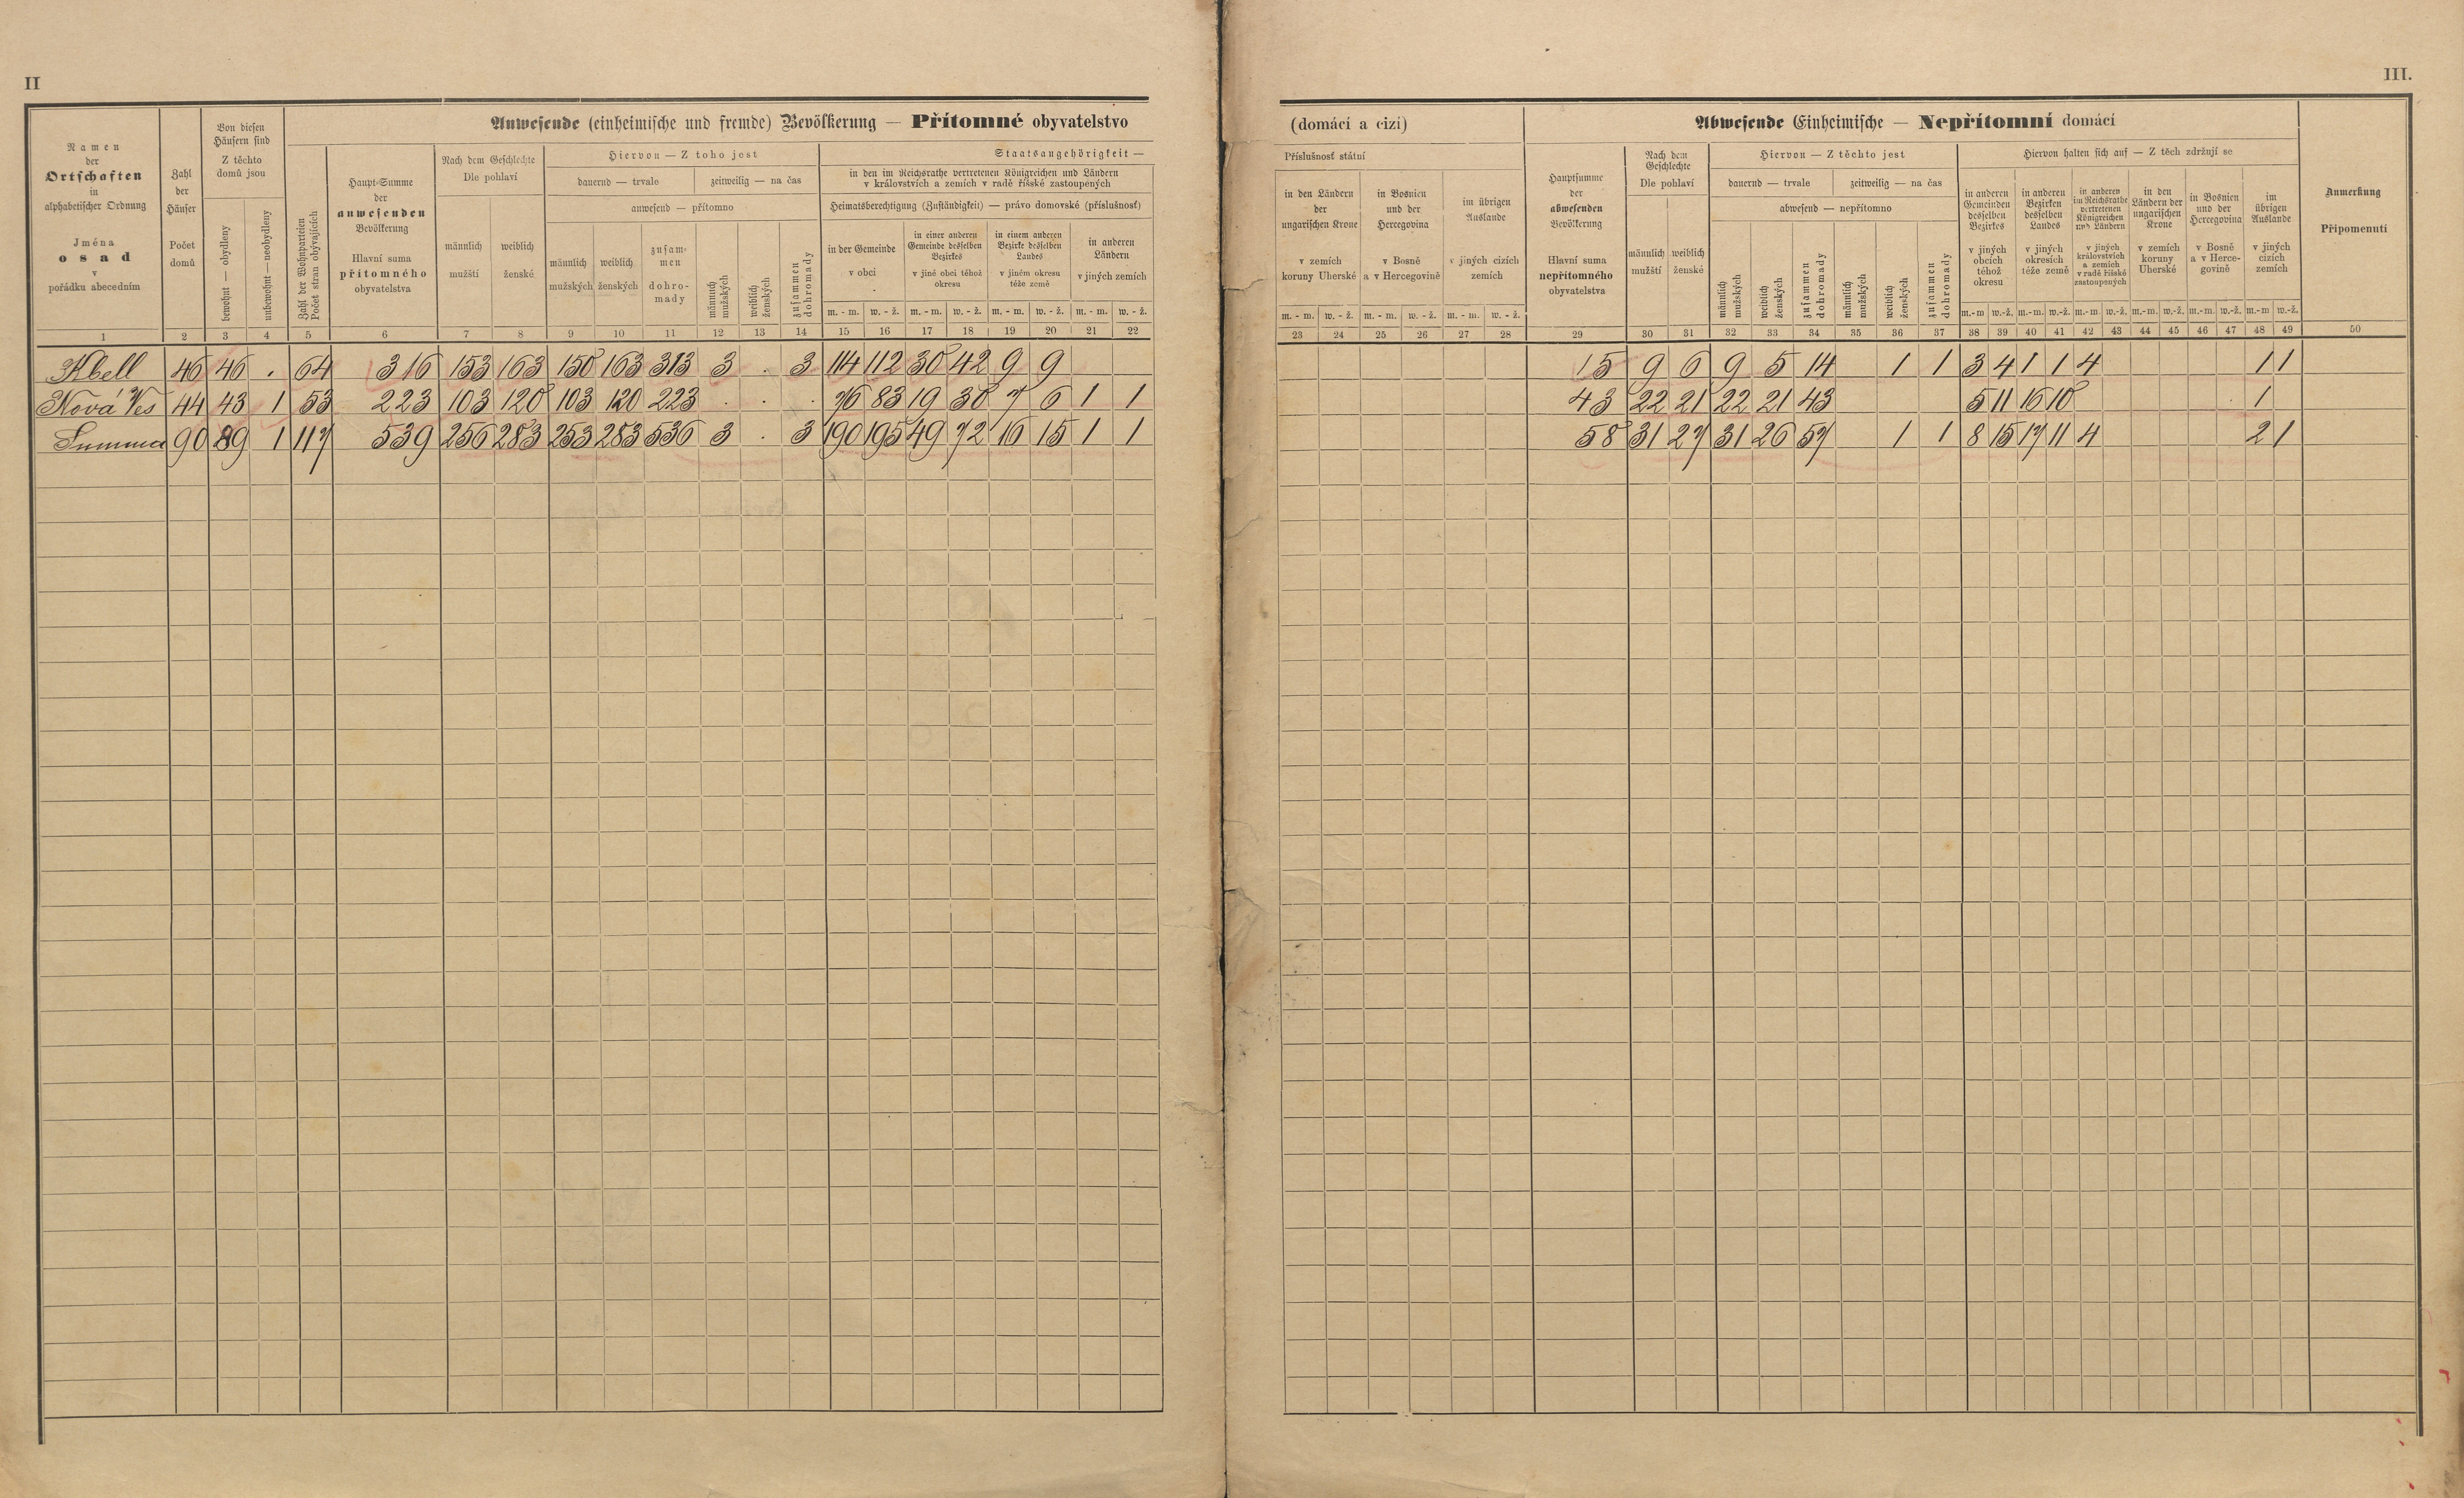 II
III.
Anwesende (einheimische und fremde) Bevölkerung — Přítomné obyvatelstvo
(domácí a cizí)
Abwesende Einheimische — Nepřítomní domácí
Namen
der
Ortschaften
in
alphabetischer Ordnung
Jména
osad
v
pořádku abecedním
Zahl
der
Häuser
Počet
domů
Von diesen
Häusern sind
Z těchto
domů jsou
bewohnt — obydleny
unbewohnt — neobydleny
Zahl der Wohnparteien
Počet stran obývajících
Haupt-Summe
der
anwesenden
Bevölkerung
Hlavní suma
přítomného
obyvatelstva
Nach dem Geschlechte
Dle pohlaví
männlich
mužští
weiblich
ženské
Hiervon — Z toho jest
dauernd — trvale
zeitweilig — na čas
anwesend — přítomno
männlich
mužských
weiblich
ženských
zusam-
men
dohro-
mady
männlich
mužských
weiblich
ženských
zusammen
dohromady
Staatsangehörigkeit —
in den im Reichsrathe vertretenen Königreichen und Ländern
v královstvích a zemích v radě říšské zastoupených
Heimatsberechtigung (Zuständigkeit) — právo domovské (příslušnosť)
in der Gemeinde
v obci
in einer anderen
Gemeinde desselben
Bezirkes
v jiné obci téhož
okresu
in einem anderen
Bezirke desselben
Landes
v jiném okresu
téže země
in anderen
Ländern
v jiných zemích
m. - m. w. - ž. m. - m. w. - ž. m. - m. w. - ž. m. - m. w. - ž.
Příslušnosť státní
in den Ländern
der
ungarischen Krone
v zemích
koruny Uherské
in Bosnien
und der
Hercegovina
v Bosně
a v Hercegovině
im übrigen
Auslande
v jiných cizích
zemích
m. - m. w. - ž. m. - m. w. - ž. m. - m. w. - ž.
Hauptsumme
der
abwesenden
Bevölkerung
Hlavní suma
nepřítomného
obyvatelstva
Nach dem
Geschlechte
Dle pohlaví
männlich
mužští
weiblich
ženské
Hiervon — Z těchto jest
dauernd — trvale
zeitweilig — na čas
abwesend — nepřítomno
männlich
mužských
weiblich
ženských
zusammen
dohromady
männlich
mužských
weiblich
ženských
zusammen
dohromady
Hiervon halten sich auf — Z těch zdržují se
in anderen
Gemeinden
desselben
Bezirkes
v jiných
obcích
téhož
okresu
in anderen
Bezirken
desselben
Landes
v jiných
okresích
téže země
in anderen
im Reichsrathe
vertretenen
Königreichen
und Ländern
v jiných
královstvích
a zemích
v radě říšské
zastoupených
in den
Ländern der
ungarischen
Krone
v zemích
koruny
Uherské
in Bosnien
und der
Hercegovina
v Bosně
a v Herce-
govině
im
übrigen
Auslande
v jiných
cizích
zemích
m.-m w.-ž. m.-m. w.-ž. m.-m. w.-ž. m.-m. w.-ž. m.-m. w.-ž. m.-m w.-ž.
Anmerkung
Připomenutí
1 2 3 4 5 6 7 8 9 10 11 12 13 14 15 16 17 18 19 20 21 22 23 24 25 26 27 28 29 30 31 32 33 34 35 36 37 38 39 40 41 42 43 44 45 46 47 48 49 50
Kbell 46 46 . 64 316 153 163 150 163 313 3 . 3 114 112 30 42 9 9 15 9 6 9 5 14 1 1 3 4 1 1 4 1 1
Nová Ves 44 43 1 53 223 103 120 103 120 223 . . . 76 83 19 30 7 6 1 1 43 22 21 22 21 43 5 11 16 10 1
Summa 90 89 1 117 539 256 283 253 283 536 3 . 3 190 195 49 72 16 15 1 1 58 31 27 31 26 57 1 1 8 15 17 11 4 2 1